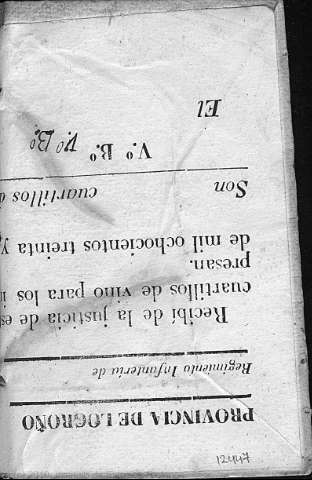 PROVINCIA DE LOGROÑO
Regimiento Infantería de
Recibí de la justicia de es
cuartillos de vino para los i
presan.
de mil ochocientos treinta y
Son cuartillos d
V.º B.º V.º B.º
El
12447